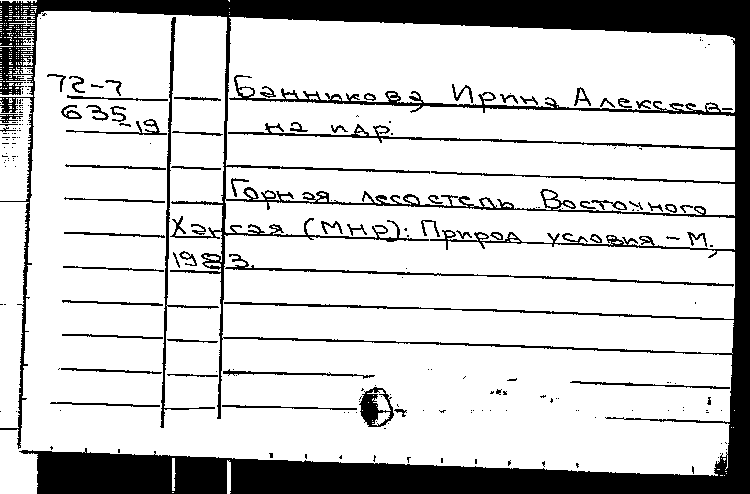 72-7
635-19
Банникова, Ирина Алексеев-
на и др.
Горная лесостепь Восточного
Хангая (МНР): Природ. условия - М.,
1983.